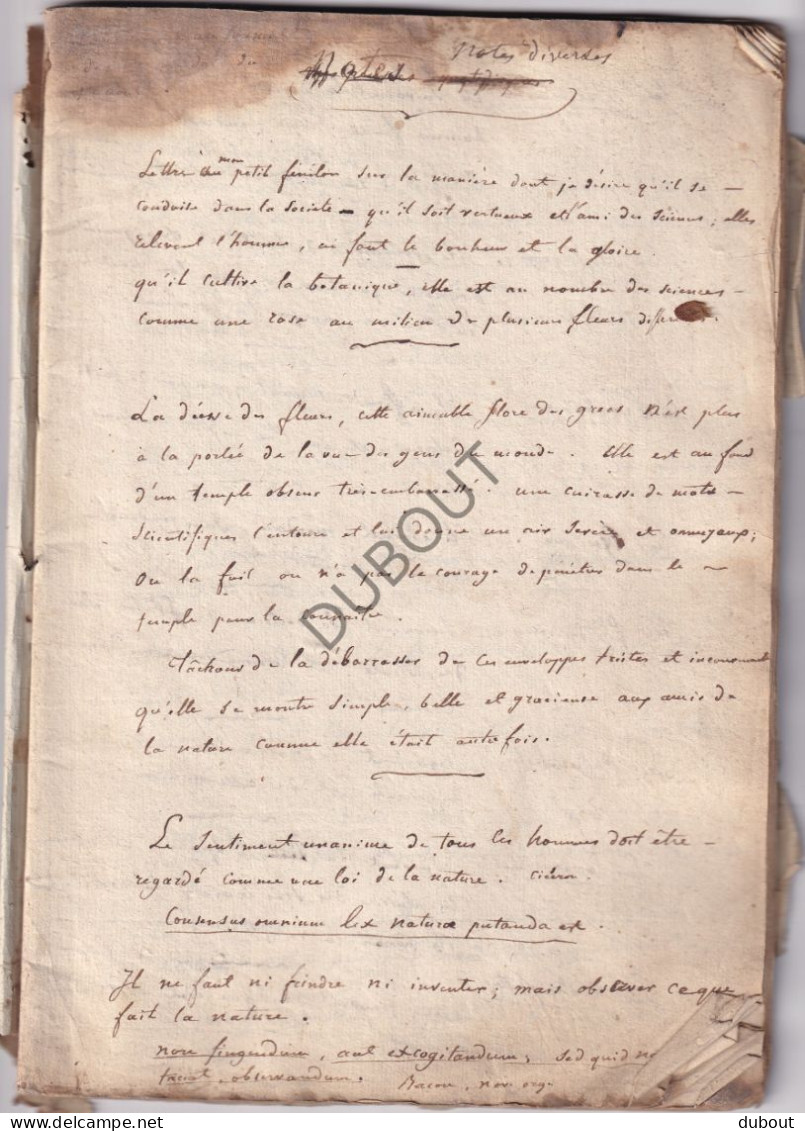 Notes diverses
Lettre à mon petit fénilon sur la manière dont je désire qu'il se
conduise dans la société - qu'il soit vertueux et l'ami des sciences ; elles
relevent l'homme, en font le bonheur et la gloire.
qu'il cultive la botanique, elle est au nombre des sciences
comme une rose au milieu de plusieurs fleurs
La déesse des fleurs, cette aimable flore des grecs n'est plus
à la portée de la vue des gens du monde. Elle est au fond
d'un temple obscur très-embarrassé. une cuirasse de mots
scientifiques l'entoure et lui donne un air sevère et ennuyeux ;
On la fuit ou n'a pas le courage de pénétrer dans le
temple pour la connaitre.
tâchons de la débarrasser de ces enveloppes tristes et
qu'elle se montre simple, belle et gracieuse aux amis de
la nature comme elle était autrefois.
Le sentiment unanime de tous les hommes doit être
regardé comme une loi de la nature. Cicéron.
Consensus omnium lex naturæ putanda est.
Il ne faut ni feindre ni inventer ; mais observer ce que
fait la nature.
non fingendum, aut excogitandum, sed quid
faciat, observandum. Bacon, nov. org.
DUBOUT
delcampe.net
dubout